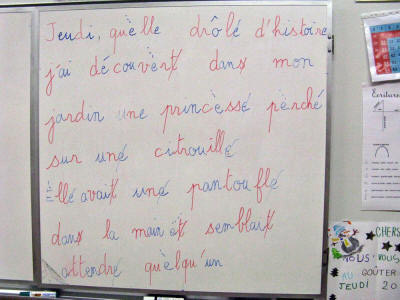 Jeudi, quèlle drôlé d'histoire
j'ai découvèrt dans mon
jardin une princèssé pèrché
sur uné citrouillé
Èllé avait uné pantouflé
dans la main èt semblait
attendré quèlqu'un
Ecriture
CHERS
NOUS VOUS
AU GOÛTER
JEUDI 20